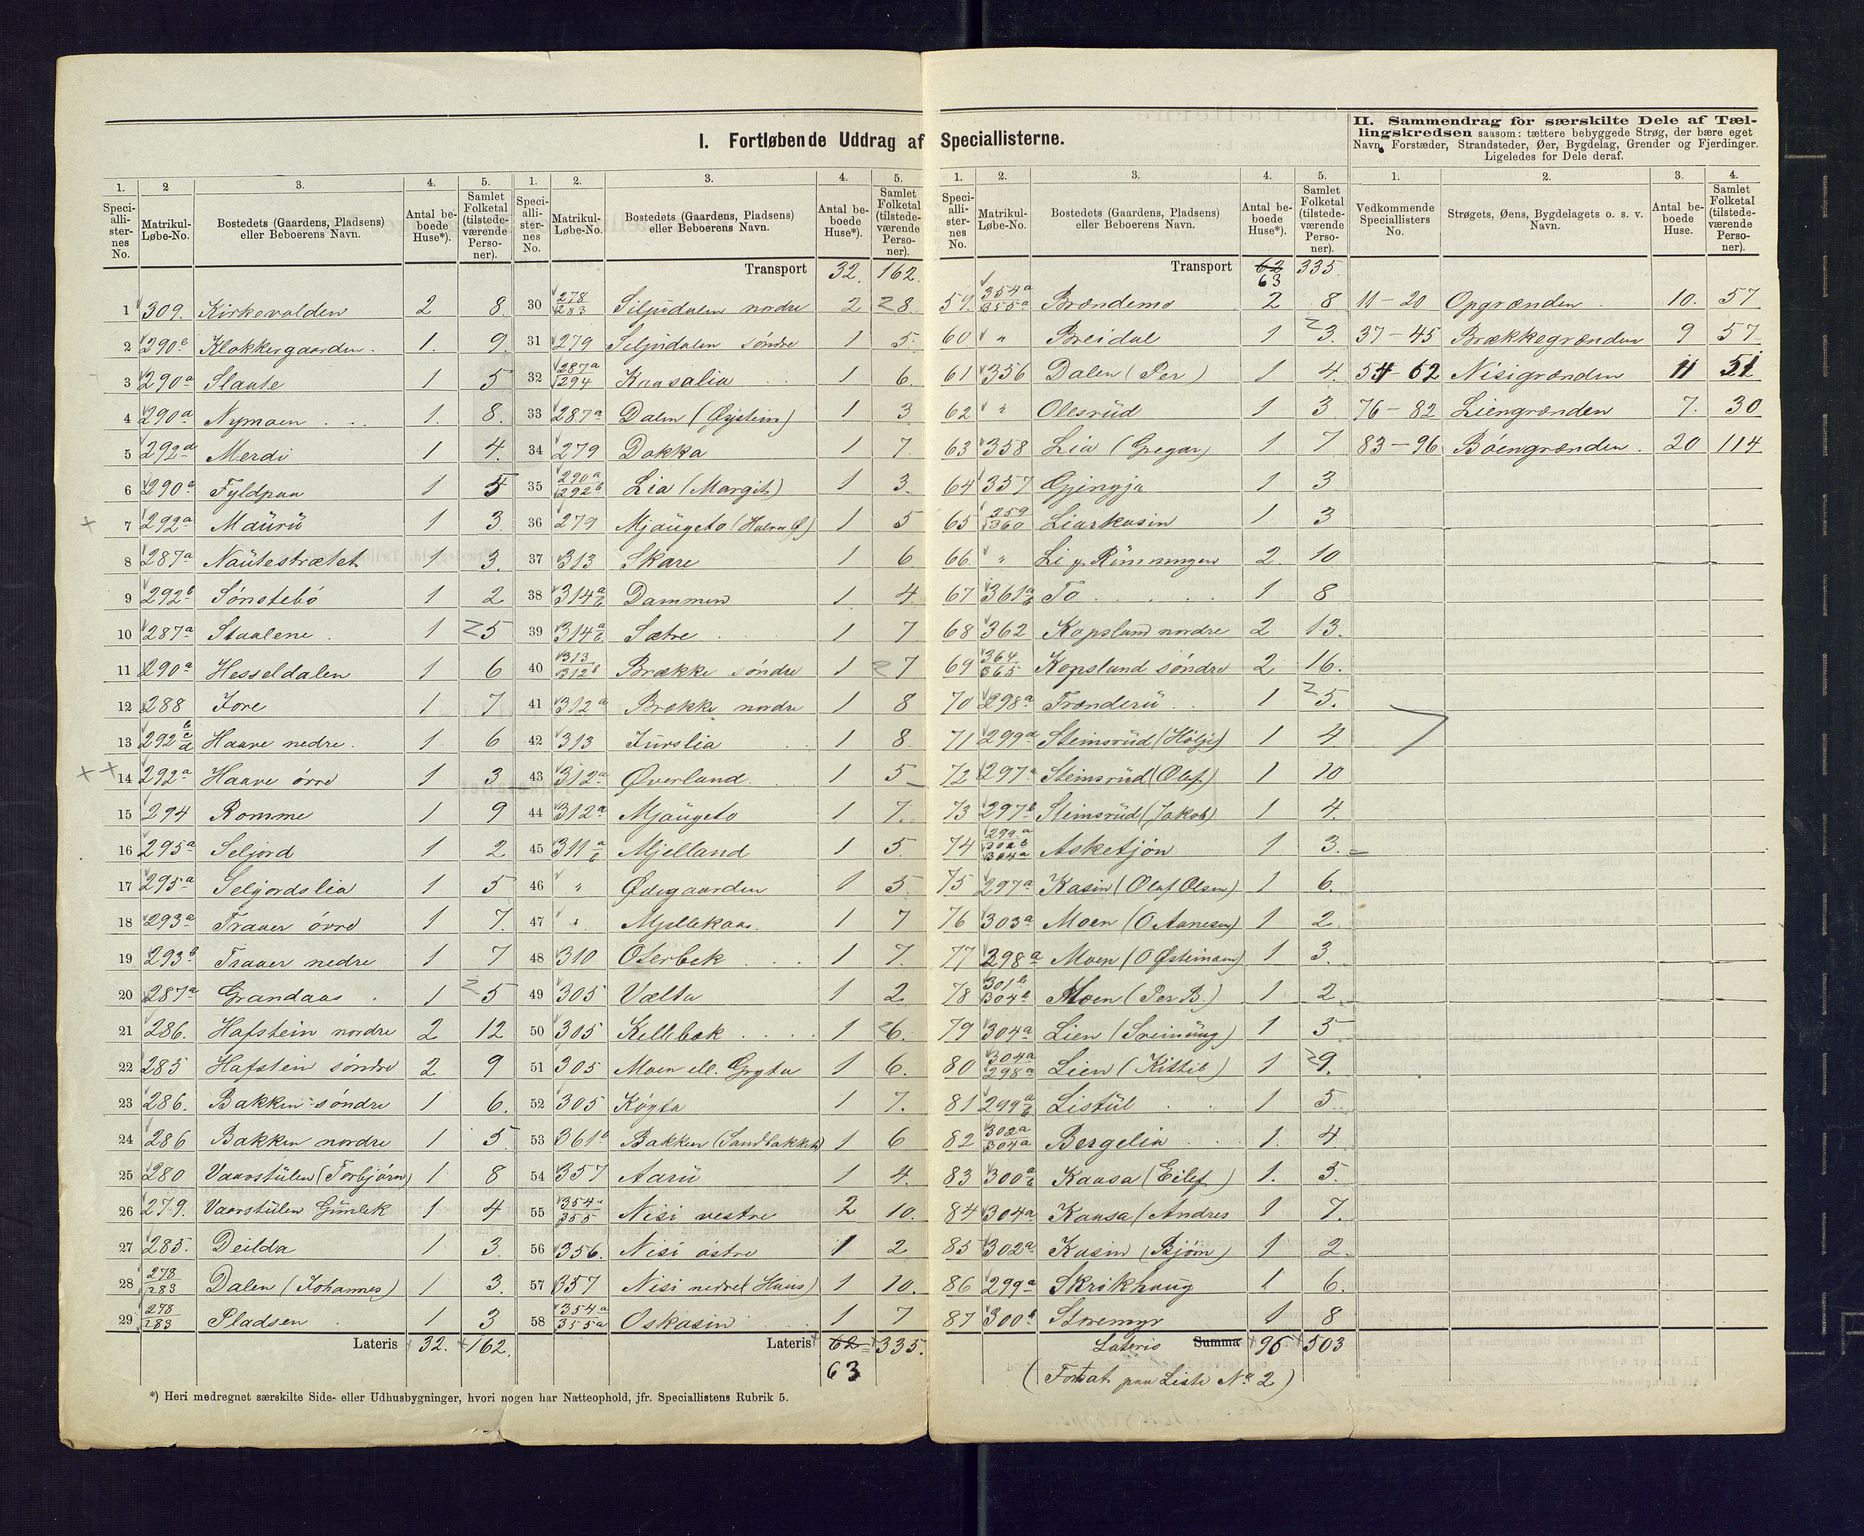 I. Fortløbende Uddrag af Speciallisterne.
II. Sammendrag for særskilte Dele af Tællingskredsen saasom: tættere bebyggede Strøg, der bære eget Navn, Forstæder, Strandsteder, Øer, Bygdelag, Grender og Fjerdinger. Ligeledes for Dele deraf.
1. 2 3. 4. 5.
Speciallisternes No. Matrikul-Løbe-No. Bostedets (Gaardens, Pladsens) eller Beboerens Navn. Antal beboede Huse*). Samlet Folketal (tilstedeværende Personer).
1 309. Kirkevolden 2 8
2 290e Klokkergaarden. 1. 9.
3 290a Slaate 1 5
4 290a Nymoen 1. 8.
5 292d Merdi 1 4.
6 290a Fyldpaa 1 5
7 292a Maurú 1 3.
8 287a Nautestrætet 1 3.
9 292b Sønstebø 1 2
10 287a Staalene. 1 5
11 290a Hesseldalen 1 6
12 288 Jore 1 7
13 292 Haave nedre. 1 6
14 292a Haave øvre 1 3
15 294 Romme 1 9
16 295a Seljord 1 2
17 295a Seljordslia 1 5
18 293a Traaer øvre 1 7.
19 293b Traaer nedre 1 7
20 287a Grandaas 1 5
21 286. Hafstein nordre 2 12
22 285 Hafstein søndre 2 9
23 286. Bakken søndre 1 6.
24 286 Bakken nordre 1 5.
25 280 Vaarstulen (Torbjørn) 1 8
26 279. Vaarstulen Gunlek 1 4
27 285. Deilda 1 3.
28 278/283 Dalen (Johannes) 1 3.
29 278/283 Pladsen 1 3
Lateris 32. 162.
1. 2. 3. 4. 5.
Speciallisternes No. Matrikul-Løbe-No. Bostedets (Gaardens, Pladsens) eller Beboerens Navn. Antal beboede Huse*). Samlet Folketal (tilstedeværende Personer).
Transport 32. 162.
30 278/283 Siljudalen nordre 2 8.
31 279 Siljudalen søndre 1 5.
32 287a/294 Kaasalia 1 6.
33 287a Dalen (Øystein) 1 3
34 279 Dokka 1 7.
35 290a/292b Lia (Margit) 1 3.
36 279 Mjaugeto (Halvor Ø) 1 5
37 313 Skare 1 6
38 314a/b Dammen 1. 4.
39 314a/b Sætre 1 7
40 313/312b Brække søndre 1 7
41 312a Brække nordre 1 8
42 313 Jurslia 1 8.
43 312a Øverland. 1 5
44 312a Mjaugeto 1 7.
45 311a/b Mjelland 1 5.
46 " Ødegaarden 1 5.
47 " Mjellekaas. 1 7
48 310 Oterbek 1 7.
49 305 Vælta 1 2.
50 305 Kellebæk 1 6.
51 305 Moen ell. Gryta 1 6.
52 305 Køgta 1 7.
53 361a Bakken (Sandbakken) 1 6
54 357 Aaru 1 4.
55 354a/355 Nisi vestre 2 10.
56 356. Nisi østre 1 2
57 357 Nisi nedre (Haus) 1 10.
58 354a/355a Oskasin 1 7
Lateris 62 335.
63
1. 2. 3. 4. 5.
Speciallisternes No. Matrikul-Løbe-No. Bostedets (Gaardens, Pladsens) eller Beboerens Navn. Antal beboede Huse*). Samlet Folketal (tilstedeværende Personer).
Transport 62 335.
63
59. 354a/355a Brændemo 2 8
60 " Breidal 1 3.
61 356 Dalen (Per) 1 4.
62 " Olesrud 1 3
63 358 Lia (Gregar) 1 7
64 357 Gjingja 1 3
65 359/360 Liarkasin 1 3
66 " Li y. Rønningen 2. 10
67 361a/b To 1 8
68 362 Kopsland nordre 2 13.
69 364/365 Kopsland søndre 2 16.
70 298a Trønderu 1 5.
71 299a Steinsrud (Hølje) 1 4
72 297a Steinsrud (Olaf) 1 10
73 297b Steinsrud (Jakob) 1 4.
74 299a 302b 304a Asketjøn 1 3.
75 297a Kasin (Olaf Olsen) 1 6.
76 303a Moen (O Aanesen) 1 2
77 298a Moen (O Østeinsen) 1 3.
78 301b/304b Moen (Per B.) 1 2
79 304a Lien (Sveinung) 1 3
80 304a/298a Lien (Kittil) 1 9.
81 299a/b Listul 1 5
82 302a/304a Bergelia 1. 4
83 300a/b Kaasa (Eilef) 1. 5.
84 304a Kaasa (Andres 1 7.
85 302a Kasin (Bjørn) 1 2
86 299a Skrikhaug 1 6.
87 300b Stremyr 1 8
Lateris Summa 96 503
(Fortsat paa Liste No 2)
1. 2. 3. 4.
Vedkommende Speciallisters No. Strøgets, Øens, Bygdelagets o. s. v. Navn. Antal beboede Huse. Samlet Folketal (tilstedeværende Personer).
11-20 Opgrænden 10. 57
37-45 Brækkegrænden 9 57
54-62 Nisigrænden 11 51
76-82 Liengrænden 7. 30
83-96 Bøengrænden. 20 114
*) Heri medregnet særskilte Side- eller Udhusbygninger, hvori nogen har Natteophold, jfr. Speciallistens Rubrik 5.